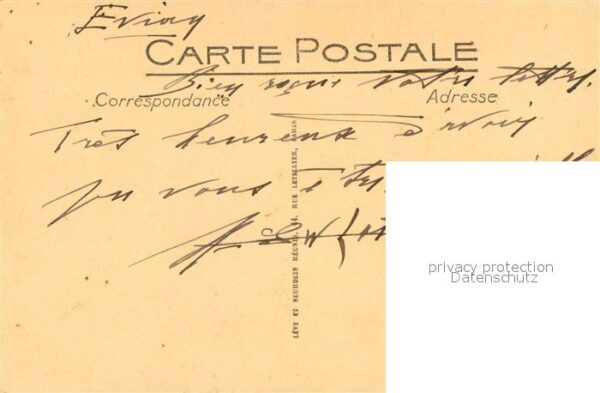 Evian
CARTE POSTALE
Bien reçue votre lettre.
Correspondance
Adresse
Très heureux d'avoir
pu vous être
LÉVY ET NEURDEIN RÉUNIS, 44, RUE LETELLIER, PARIS
privacy protection
Datenschutz